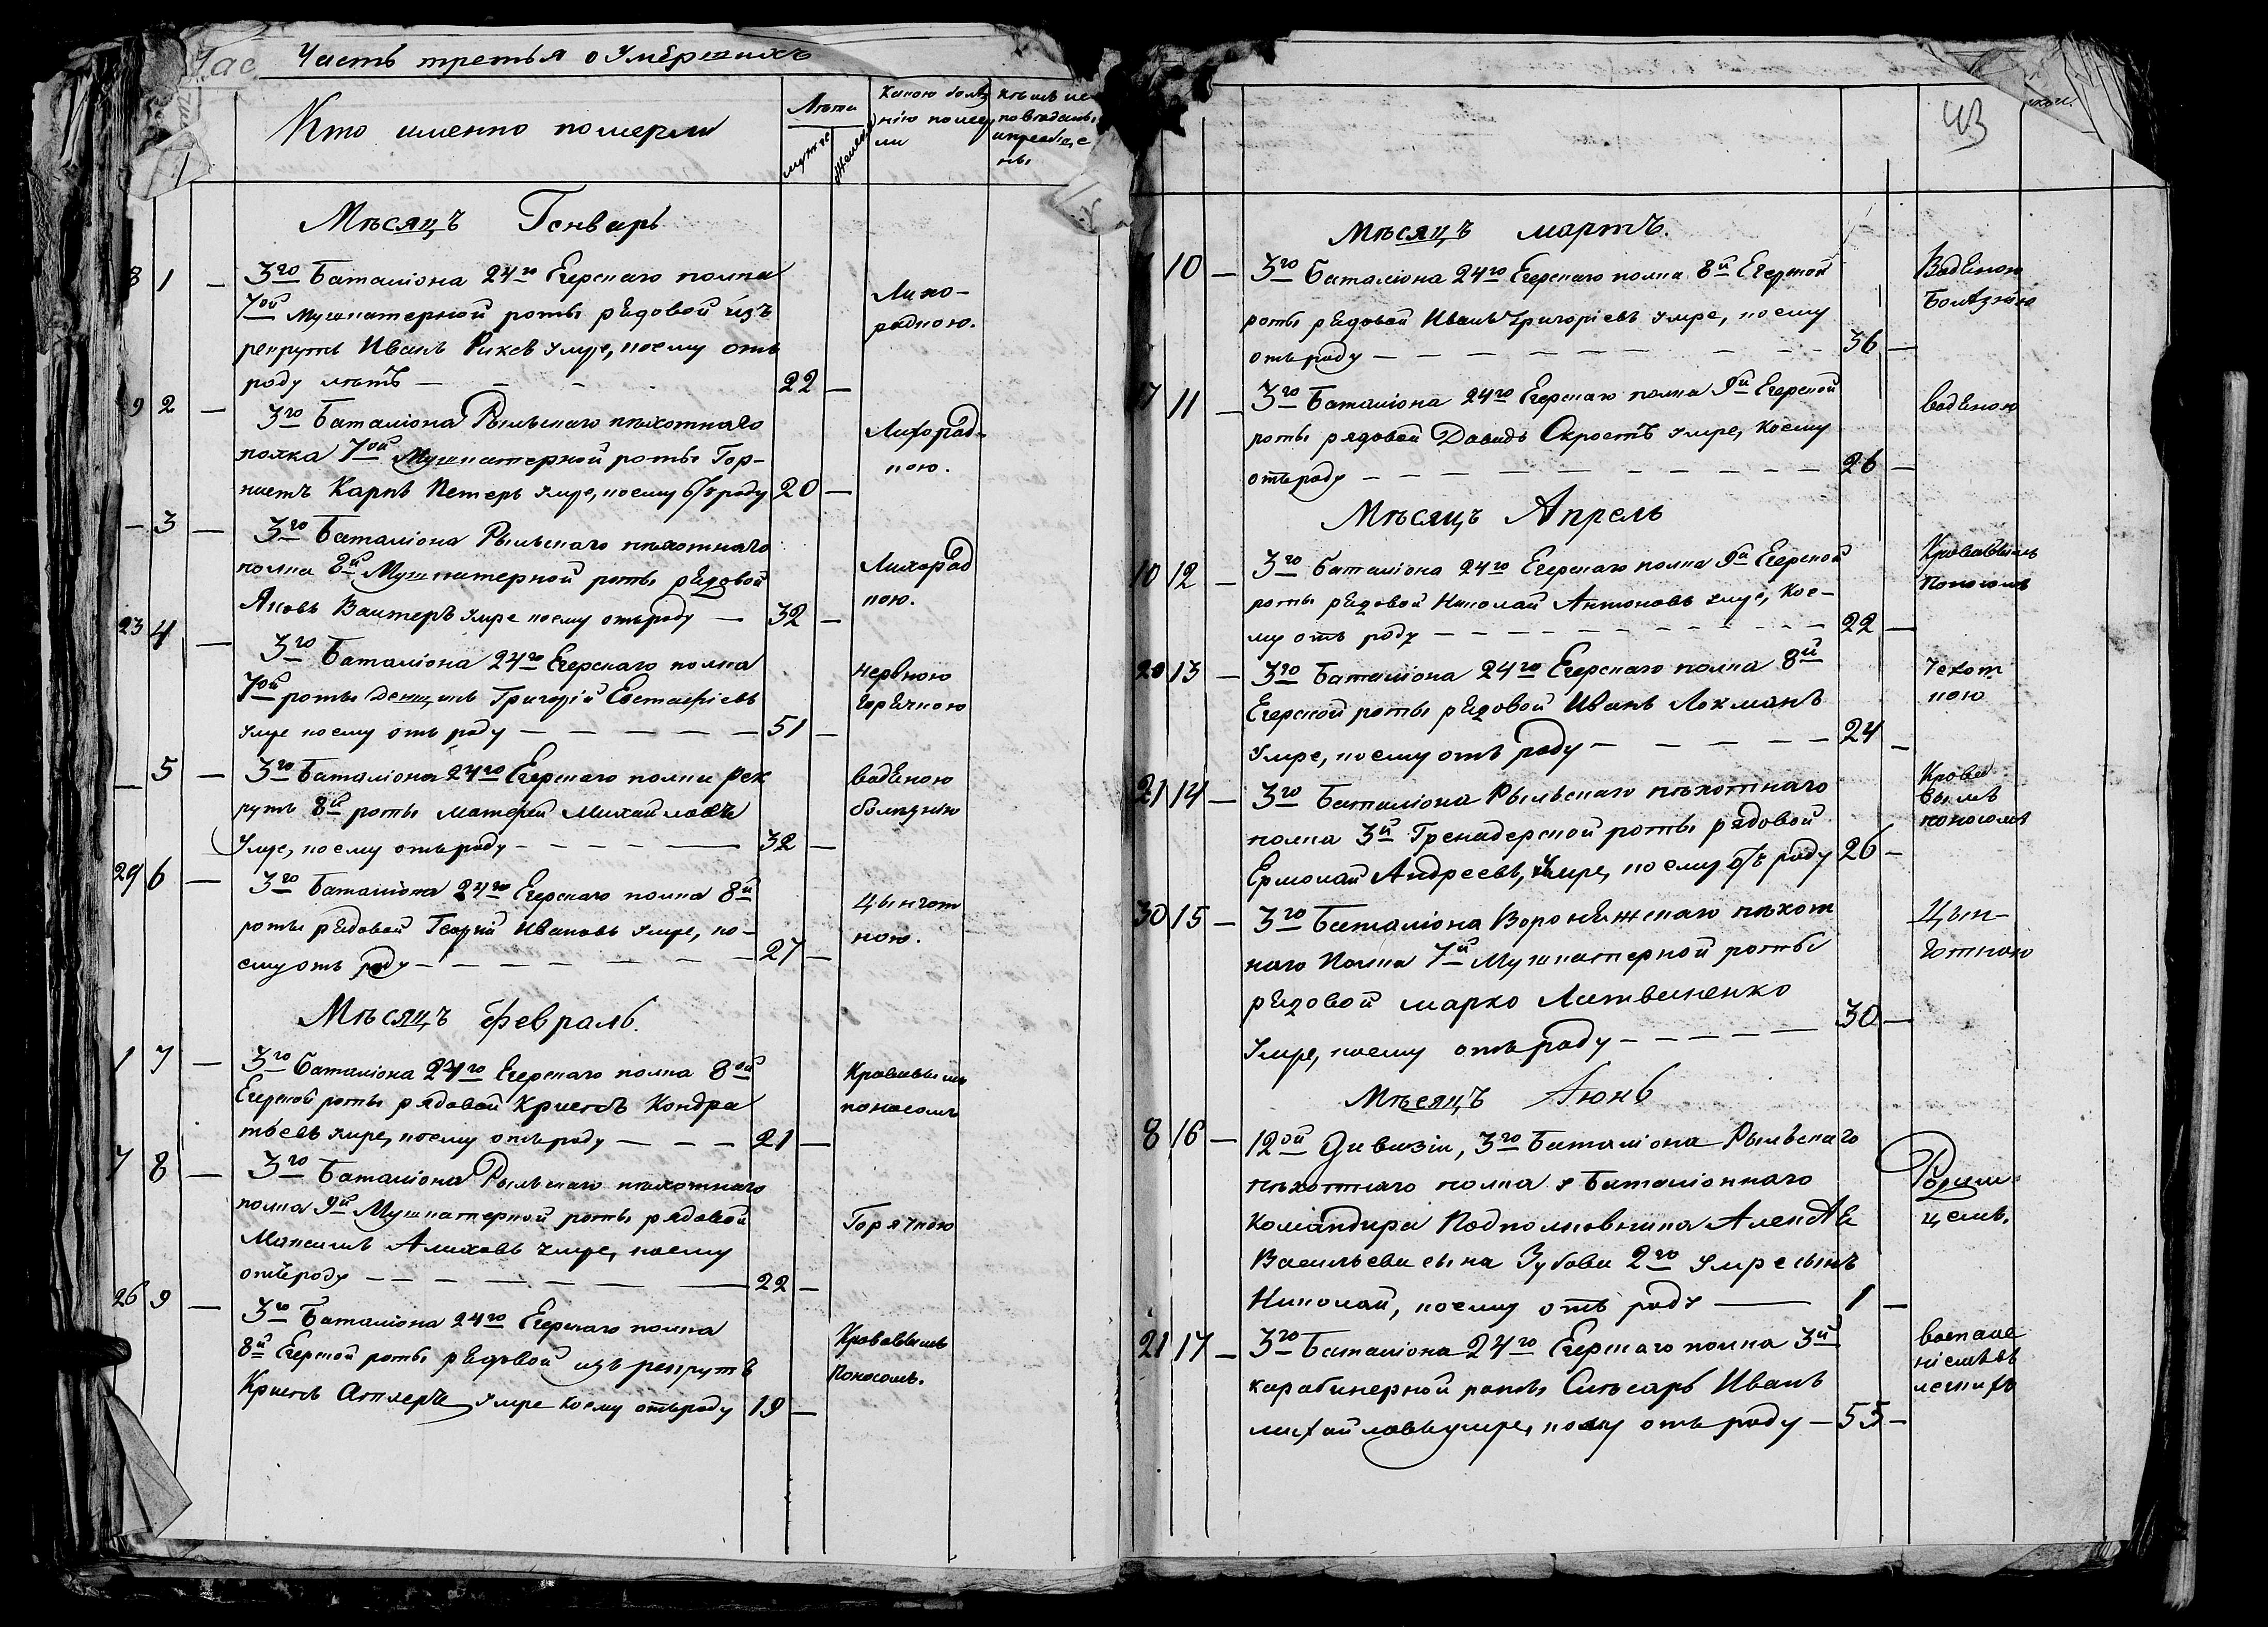 Часть третья о Умершихъ
Кто именно померли
Лѣта
мужес
женска
Какою болѣз
нію помер
ли
Кѣмъ ис
повѣданы
и приобще
ны
Мѣсяцъ Генварь
8 1 — 3го Баталіона 24го Егерскаго полка
7ой Мушкатерной роты рядовой изъ
рекрутъ Иванъ умре, коему отъ
роду лѣтъ — 22 —
Лихо-
радкою.
9 2 — 3го Баталіона Рыльскаго пѣхотнаго
полка 7ой Мушкатерной роты Гор-
нистъ Карпъ Петеръ умре, коему отъ роду 20 —
Лихорад-
кою.
— 3 — 3го Баталіона Рыльскаго пѣхотнаго
полка 8й Мушкатерной роты рядовой
Яковъ Валтеръ умре коему отъ роду — 32 —
Лихорад
кою.
23 4 — 3го Баталіона 24го Егерскаго полка
7ой роты денщикъ Григорій Евстафіевъ
умре коему отъ роду — 51 —
нервною
горячкою
— 5 — 3го Баталіона 24го Егерскаго полка рек
рутъ 8й роты Матфей Михайловъ
Умре, коему отъ роду — 32 —
водяною
болѣзнію
29 6 — 3го Баталіона 24го Егерскаго полка 8й
роты рядовой Георгій Ивановъ умре, ко-
ему отъ роду — 27 —
Цынгот
ною.
Мѣсяцъ Февраль.
1 7 — 3го Баталіона 24го Егерскаго полка 8ой
Егерской роты рядовой Кристъ Кондра
тьевъ умре, коему отъ роду — 21 —
Кровавымъ
поносомъ
7 8 — 3го Баталіона Рыльскаго пѣхотнаго
полка 9й Мушкатерной роты рядовой
Максимъ Алиховъ умре, коему
отъ роду — 22 —
Горячкою
26 9 — 3го Баталіона 24го Егерскаго полка
8й Егерской роты рядовой изъ рекрутъ
Кристъ умре коему отъ роду 19 —
Кровавымъ
Поносомъ.
43
Мѣсяцъ мартъ.
10 — 3го Баталіона 24го Егерскаго полка 8й Егерской
роты рядовой Иванъ Григоріевъ умре, коему
отъ роду — 36 —
Водяною
Болѣзнію
17 11 — 3го Баталіона 24го Егерскаго полка 9й Егерской
роты рядовой Давидъ Окростъ умре, Коему
отъ роду — 26 —
водяною
Мѣсяцъ Апрель
10 12 — 3го баталіона 24го Егерскаго полка 9й Егерской
роты рядовой Николай Антоновъ умре, Кое-
му отъ роду — 22 —
Кровавымъ
Поносомъ
20 13 — 3го Баталіона 24го Егерскаго полка 8й
Егерской роты рядовой Иванъ Локманъ
Умре, коему отъ роду — 24 —
чехот
кою
21 14 — 3го Баталіона Рыльскаго пѣхотнаго
полка 3й Гренадерской роты рядовой
Ермолай Андреевъ, Умре, коему отъ роду 26 —
Крова
вымъ
поносомъ
30 15 — 3го Баталіона Воронежскаго пѣхот
наго Полка 7й Мушкатерной роты
рядовой марко Литвиненко
Умре, коему отъ роду — 30 —
Цын-
готною
Мѣсяцъ Іюнь
8 16 — 12ой Дивизіи, 3го Баталіона Рыльскаго
пѣхотнаго полка у Баталіоннаго
Командира Подполковника Александра
Васильева сына Зубова 2го умре сынъ
Николай, коему отъ роду — 1 —
Родим-
цемъ.
21 17 — 3го Баталіона 24го Егерскаго полка 3й
карабинерной роты Слесарь Иванъ
михайловъ умре, коему отъ роду — 55 —
воспале
ніемъ въ
легкихъ